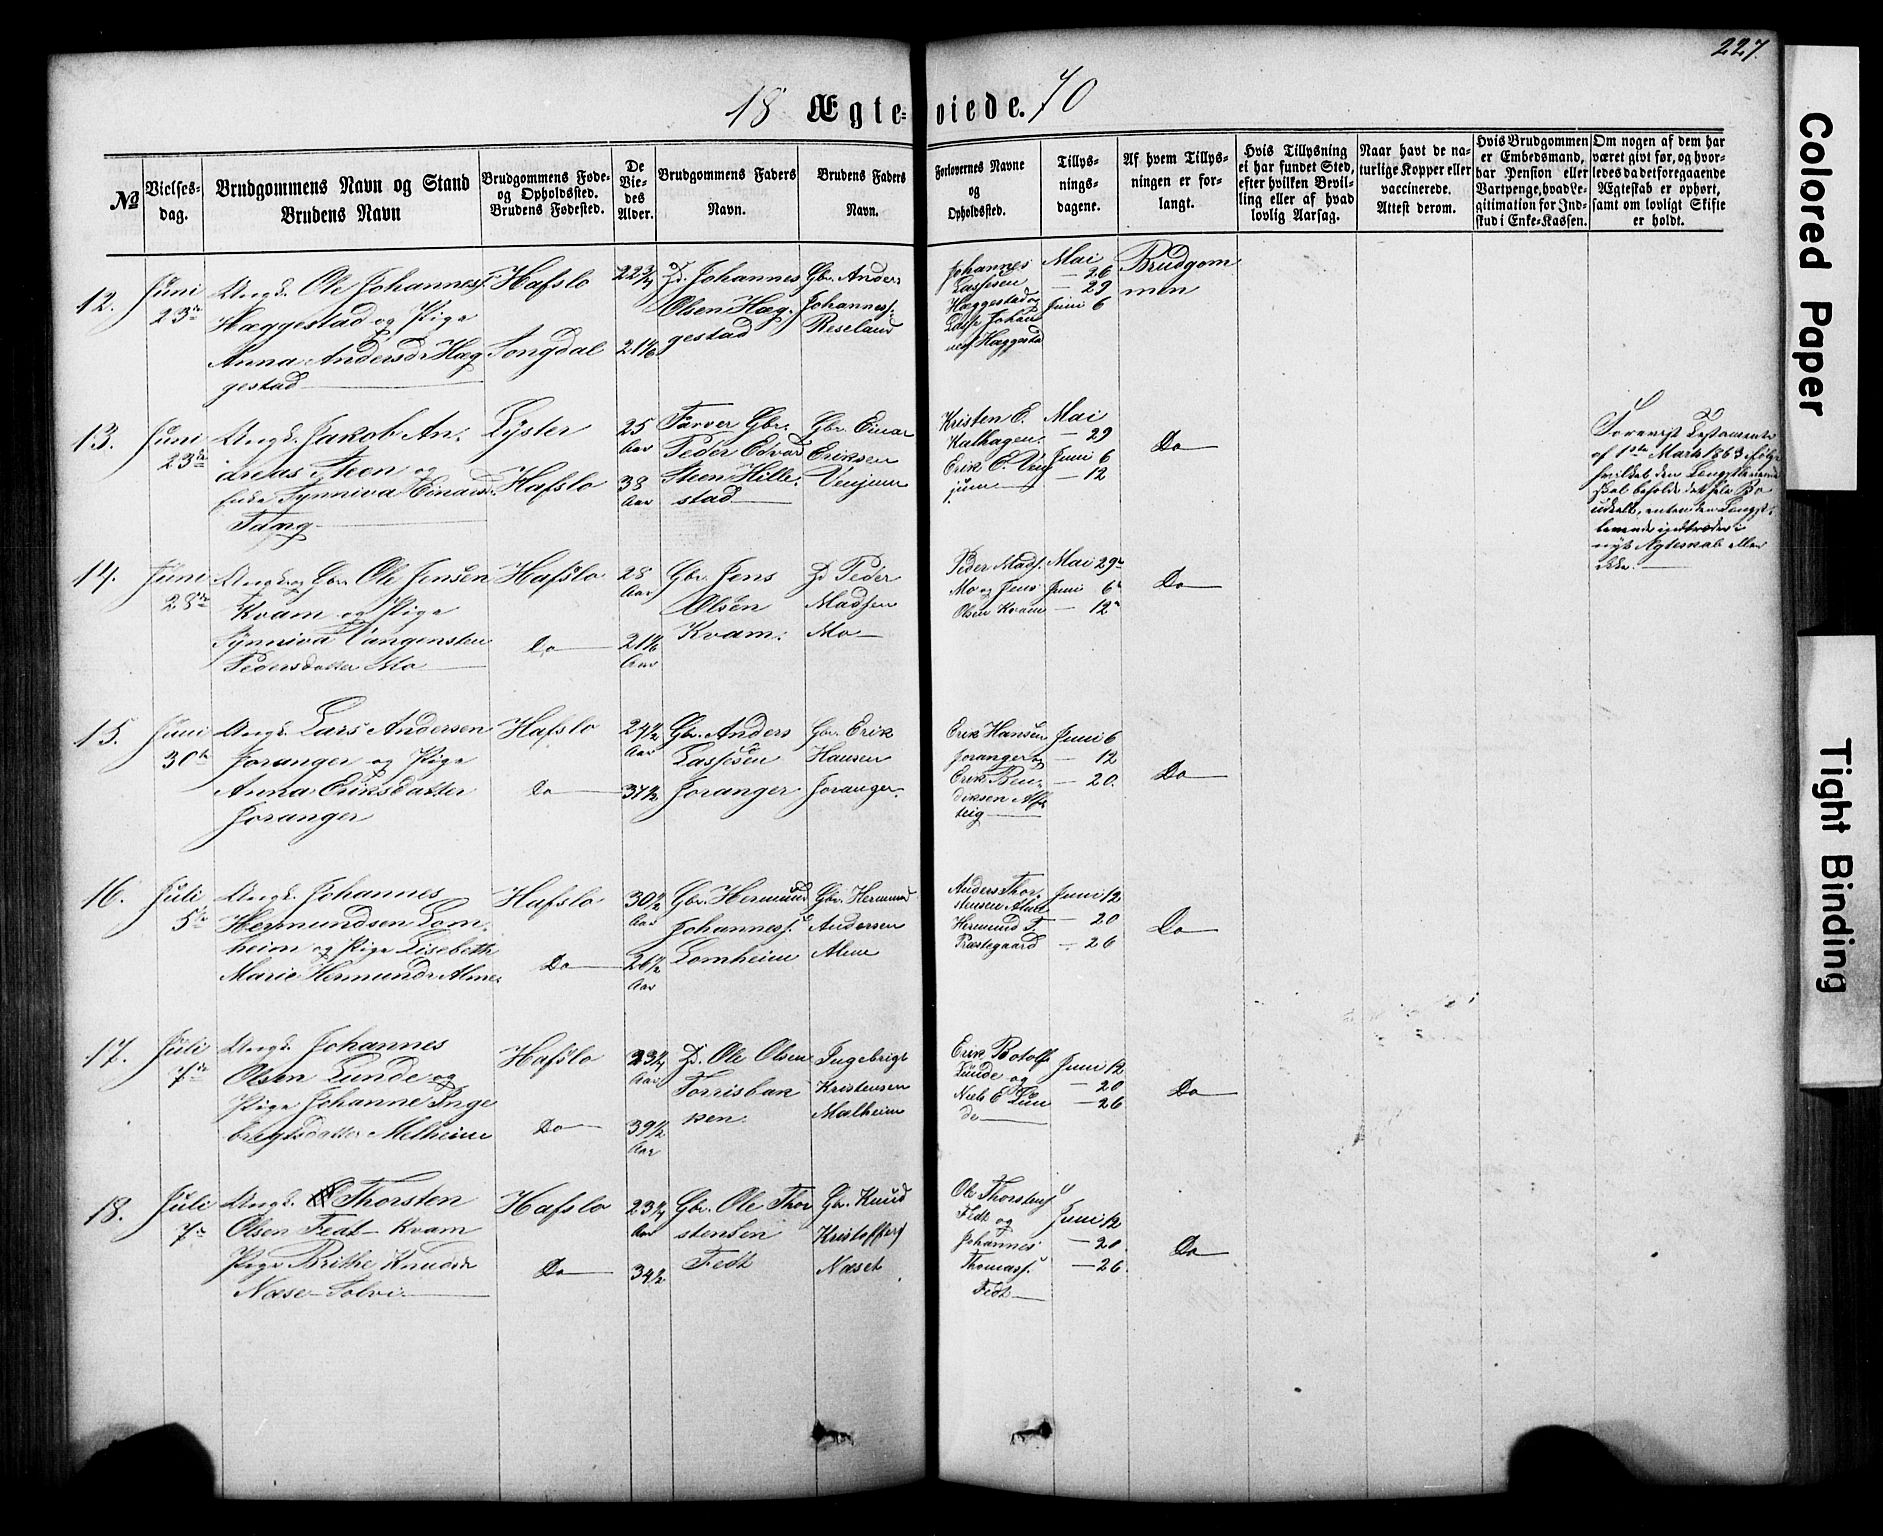 227.
18 Ægteviede. 70
No
Vielsesdag.
Brudgommens Navn og Stand
Brudens Navn
Brudgommens Føde- og Opholdssted.
Brudens Fødested.
De Viedes Alder.
Brudgommens Faders Navn.
Brudens Faders Navn.
Forlovernes Navne og Opholdssted.
Tillysningsdagene.
Af hvem Tillysningen er forlangt.
Hvis Tillysning ei har fundet Sted, efter hvilken Bevilling eller af hvad lovlig Aarsag.
Naar havt de naturlige Kopper eller vaccinerede. Attest derom.
Hvis Brudgommen er Embedsmand, har Pension eller Vartpenge, hvad Legitimation for Indskud i Enke-Kassen.
Om nogen af dem har været givt før, og hvorledes da det foregaaende Ægteskab er ophørt, samt om lovligt Skifte er holdt.
12.
Juni
23de
Ungk. Ole Johannes.
Haggestad og Pige
Anna Andersdr Hæg
gestad
Hafslo
Songdal
22 3/4
21 1/6
Johannes
Olsen Hæg.
gestad
Gbr. Anders
Johannes.
Reseland
Johannes
Lassesen
Hæggestad og
Lasse Johan
nes. Hæggestad
Mai
- 26
- 29
Juni 6
Brudgom
men
13.
Juni
23de
Ungk. Jakob An.
dreas Steen og
Enke Synniva Einarsd.
Tang
Lyster
Hafslo
25
Aar
38
Aar
Farver Gbr.
Peder Edvard
Steen Hille.
stad
Gbr. Einar
Eriksen
Venjum
Kristen E.
Kalhagen.
Erik E. Ven
jum
Mai
- 29
Juni 6
- 12
Do
Forevist Testamente
af 1ste Marts 1863 ifølge
hvilket den Længstlevende
skal beholde det hele Bo
udeelt, enten den Længst-
levende indtræder i
nyt Ægteskab eller
ikke.
14.
Juni
28de
Ungk. og Gbr. Ole Jensen
Kvam og Pige
Synniva Vangensten
Pedersdatter Mo
Hafslo
Do
28
Aar
21 1/6
Aar
Gbr. Jens
Olsen
Kvam.
Peder
Madsen
Mo
Peder Mads.
Mo og Jens
Olsen Kvam
Mai 29
Juni 6
- 12
Do
15.
Juni
30te
Ungk. Lars Andersen
Joranger og Pige
Anna Eriksdatter
Joranger
Hafslo
Do
24 1/2
Aar
37 1/2
Gbr. Anders
Lassesen
Joranger
Gbr. Erik
Hansen
Joranger.
Erik Hansen
Joranger og
Erik Ben.
diksen
teig
Juni 6
- 12
- 20.
Do
16.
Juli
5te
Ungk. Johannes
Hermundsen Lom.
heim og Pige Lisebeth
Marie Hermundsdr Alme
Hafslo
Do
30 1/2
Aar
26 1/2
Aar
Gbr. Hermund
Johannes.
Lomheim
Gbr. Hermund
Andersen
Alme
Anders Thor.
stensen Alme
Hermund T.
Præstegaard
Juni 12
- 20
- 26
Do
17.
Juli
7de
Ungk. Johannes
Olsen Lunde og
Pige Johanne Inge
bregtsdatter Melheim
Hafslo
Do
23 1/4
Aar
39 1/2
Aar
Ole Olsen
Torrisbak
ken.
Ingebrigt
Kristensen
Malheim
Erik Botolfs.
Lunde og
Niels E Lun
de
Juni 12
- 20
- 26
Do
18.
Juli
7de
Ungk. Thorsten
Olsen Fedt - Kvam
Pige Brithe Knudsdr
Næse - Solvi
Hafslo
Do
23 1/4
Aar
34 1/2
Gbr. Ole Thor
stensen
Fedt
Gbr. Knud
Kristoffers.
Næset
Ole Thorstens.
Fedt og
Johannes
Thomass.
Fedt
Juni 12
- 20.
- 26.
Do
Colored Paper
Tight Binding